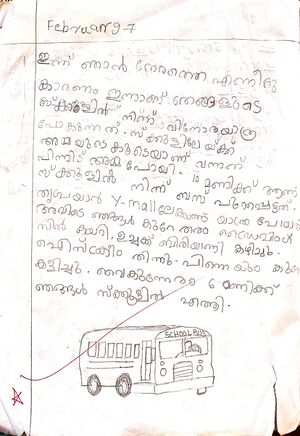 February 27
ഇന്ന് ഞാൻ നേരത്തെ എന്നീറ്റു
കാരണം ഇന്നാണ് ഞങ്ങളുടെ
സ്ക്കൂളിൽ നിന്ന് വിനോദയാത്ര
പോകുന്നത്. സ്ക്കൂളിലേയ്ക്ക്
അമ്മയുടെ കൂടെയാണ് വന്നത്
പിന്നീട് അമ്മ പോയി. 10 മണിക്ക് ആണ്
സ്ക്കൂളിൽ നിന്ന് ബസ് പുറപ്പെട്ടത്.
തൃപ്രയാർ Y-mallലേക്കാണ് യാത്ര പോയത്
അവിടെ ഞങ്ങൾ കുറേ തരം റൈഡിംഗ്
സിൽ കയറി, ഉച്ചക്ക് ബിരിയാണി കഴിച്ചു.
ഐസ്ക്രീം തിന്നു. പിന്നെയും കുറേ
കളിച്ചു. വൈകുന്നേരം 6 മണിക്ക്
ഞങ്ങൾ സ്ക്കൂളിൽ എത്തി.
SCHOOL BUS